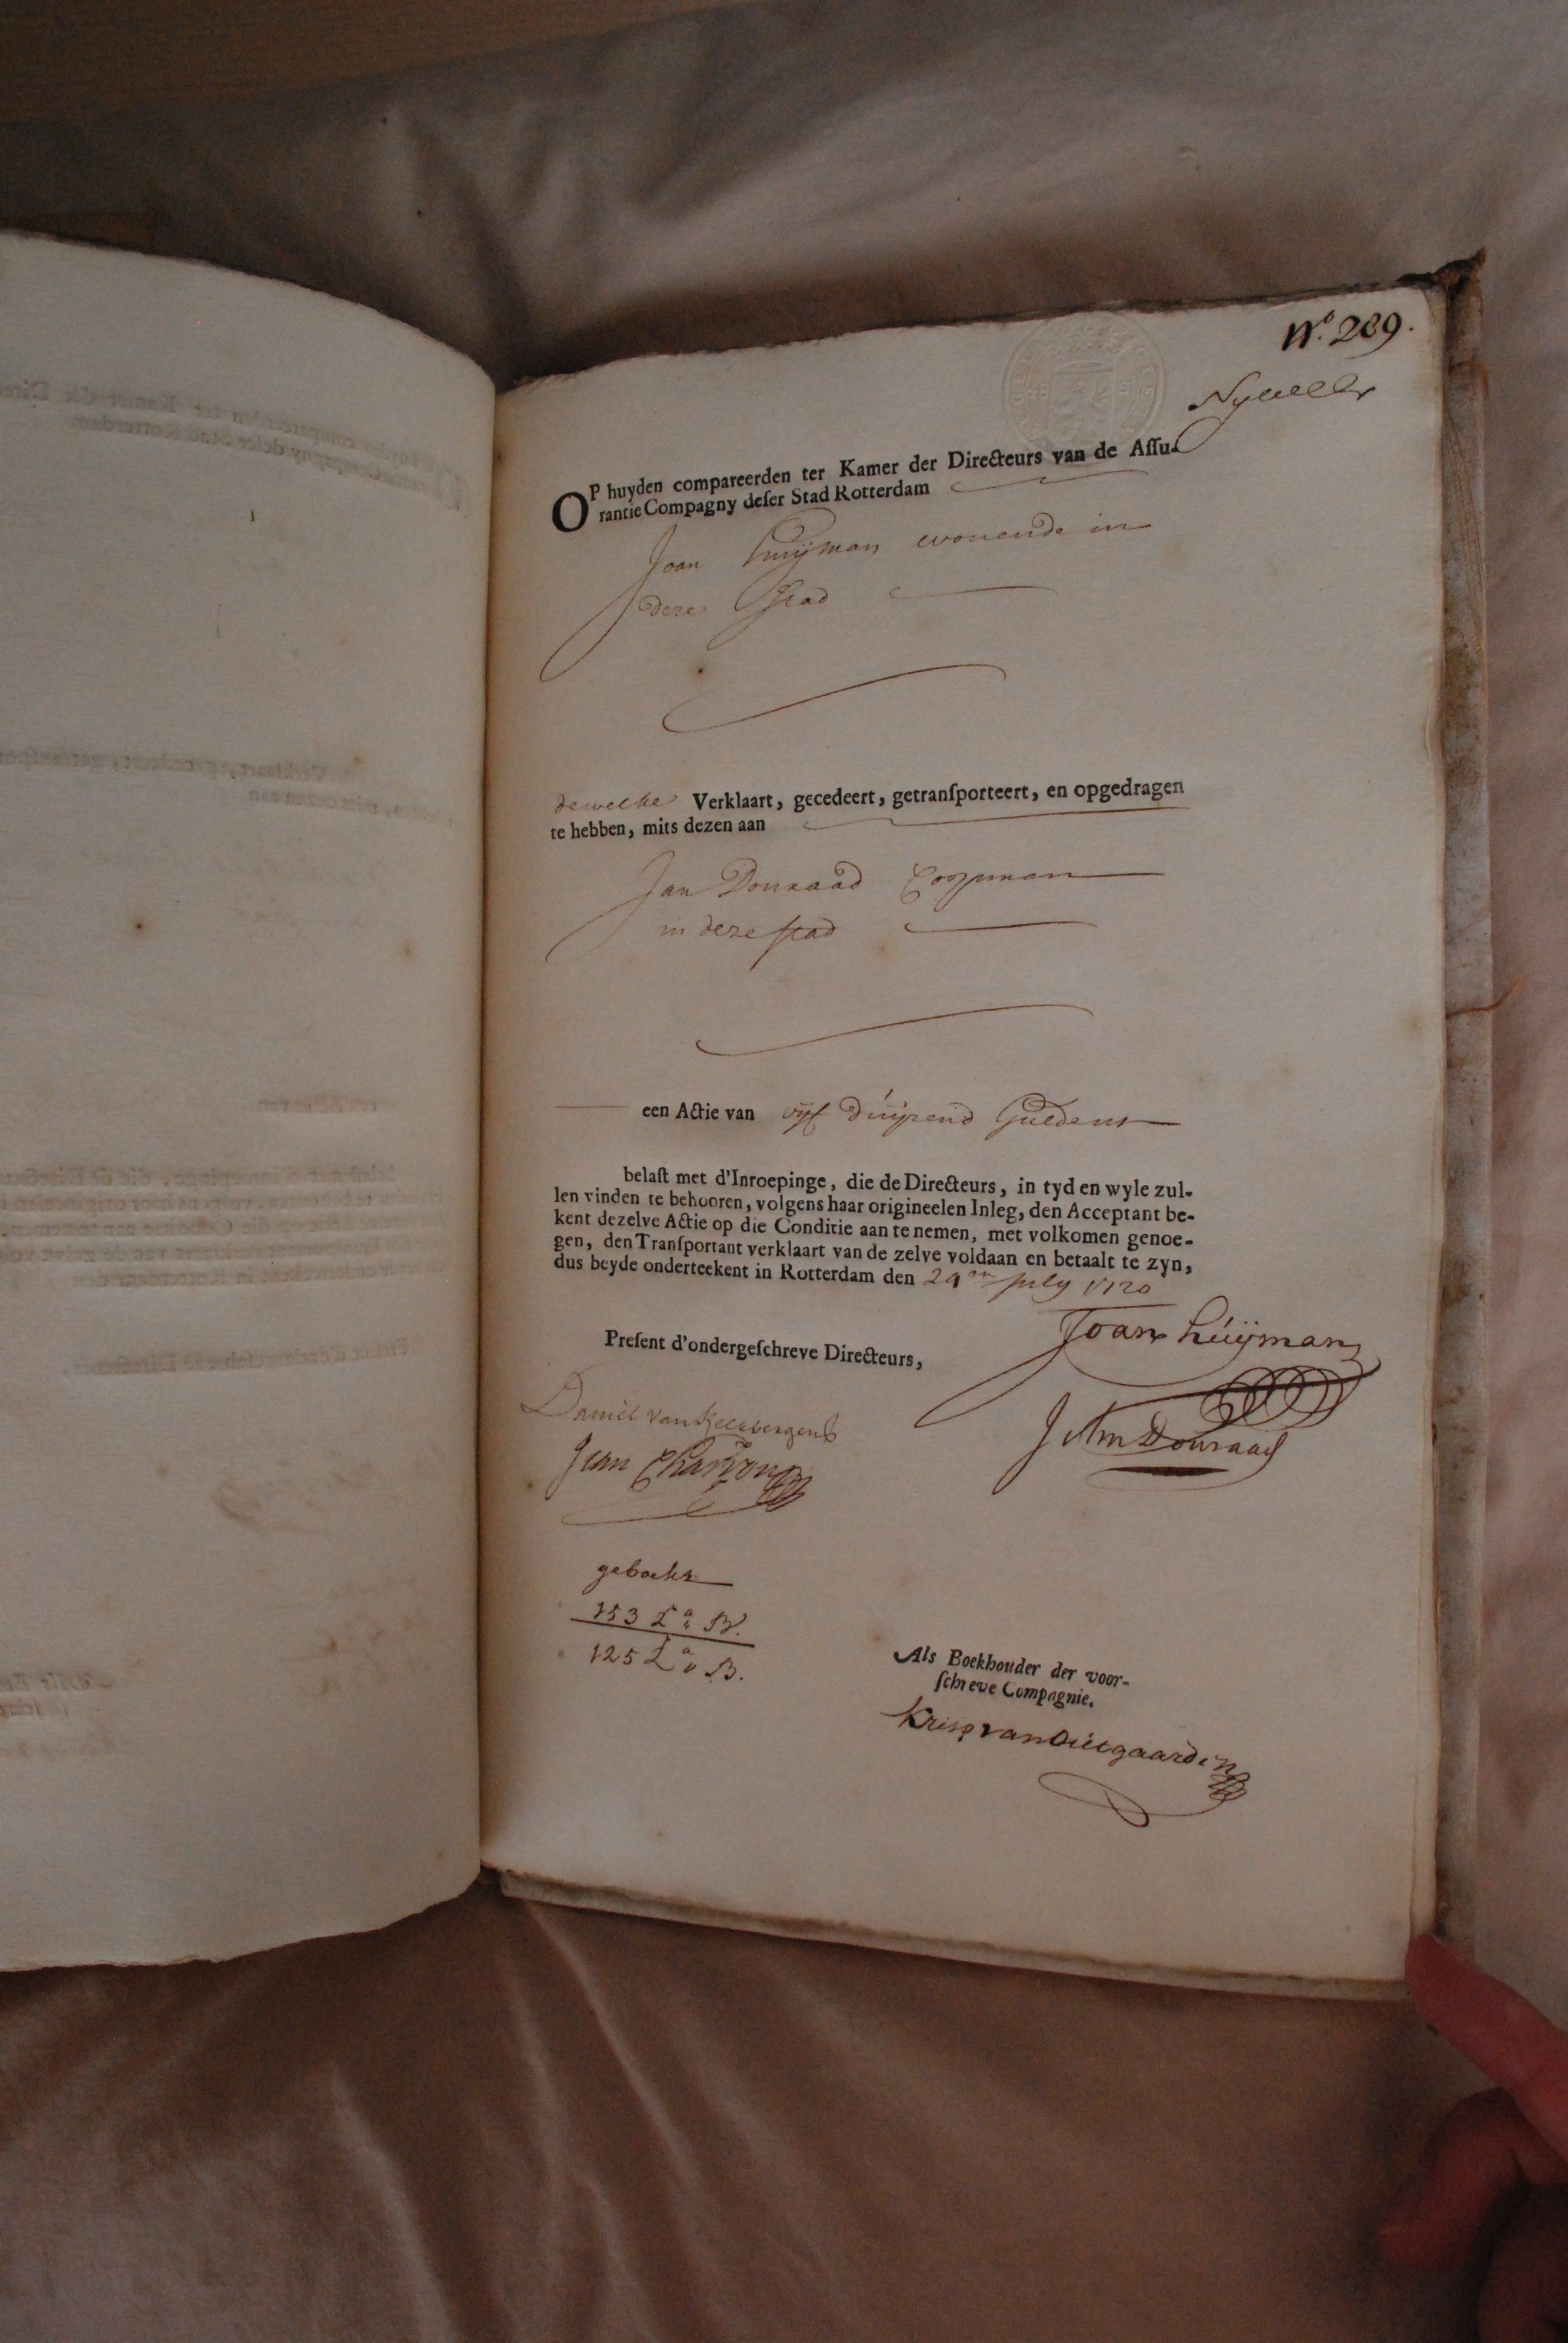 N.º 289.
OP huyden compareerden ter Kamer der Directeurs van de Aſſu-
rantie Compagny deſer Stad Rotterdam
Joan Huijman wonende in
deze Stad
dewelke Verklaart, gecedeert, getranſporteert, en opgedragen
te hebben, mits dezen aan
Jan Douraad Coopman
in deze stad
een Actie van vijf duijzend Guldens
belaſt met d'Inroepinge, die de Directeurs, in tyd en wyle zul-
len vinden te behooren, volgens haar origineelen Inleg, den Acceptant be-
kent dezelve Actie op die Conditie aan te nemen, met volkomen genoe-
gen, den Tranſportant verklaart van de zelve voldaan en betaalt te zyn,
dus beyde onderteekent in Rotterdam den July 1720
Joan Húijman
Preſent d'ondergeſchreve Directeurs,
Daniel van
John Douraad
Jean
geboekt
153 Lª B.
125 Lª B.
Als Boekhouder der voor-
ſchreve Compagnie.
Krisp van